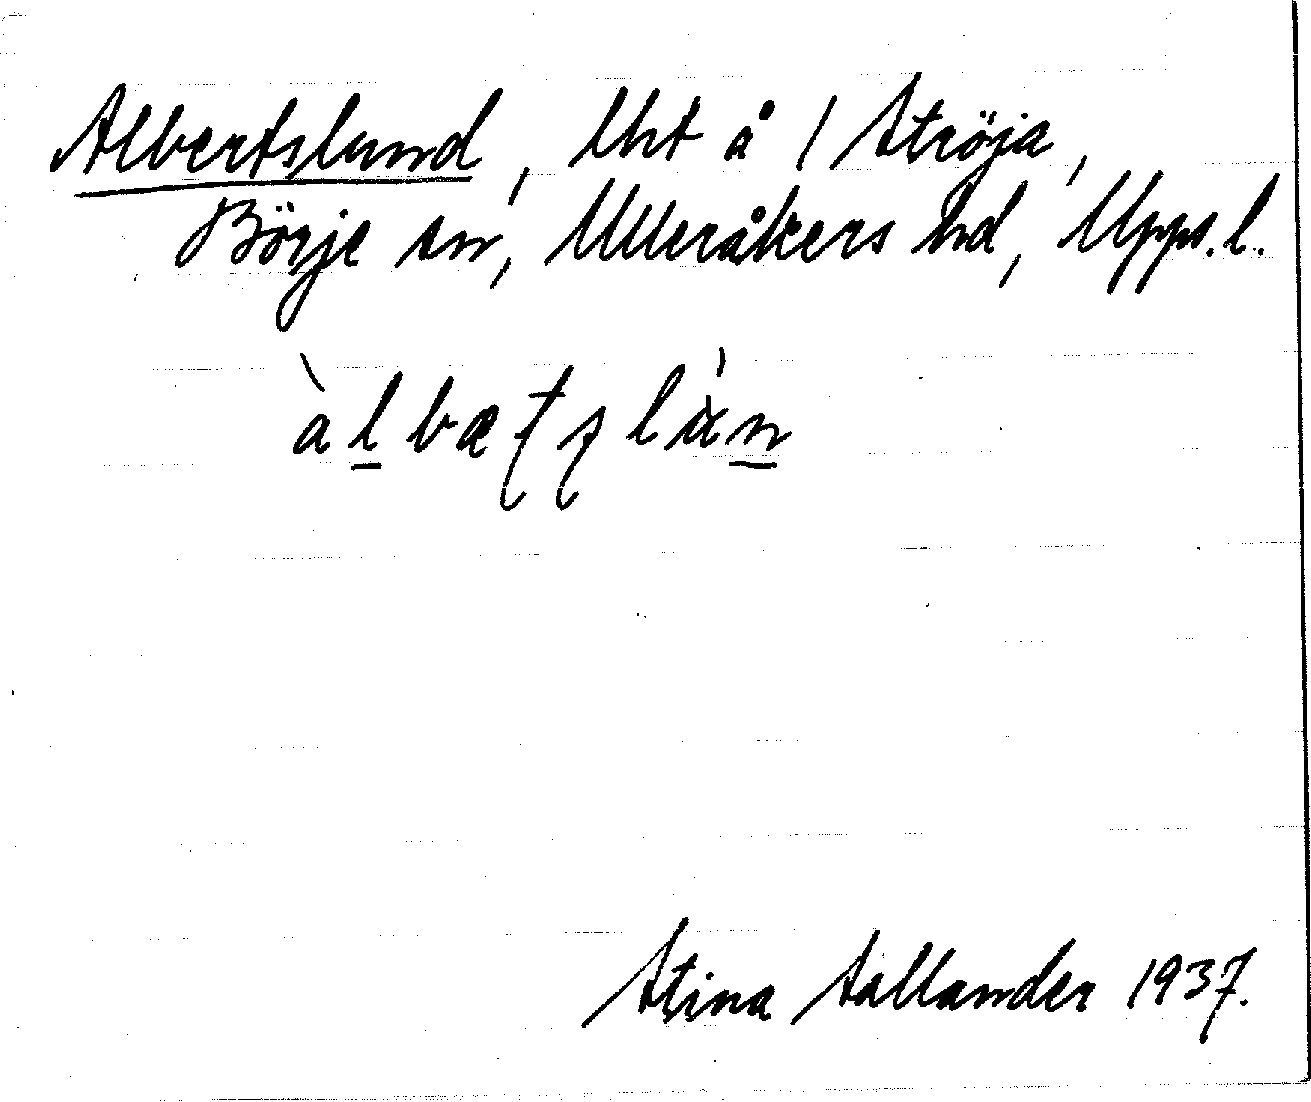 Albertslund, lht å 1 Ströja,
Börje sn, Ulleråkers hd, Upps.l.
Stina Sallander 1937.